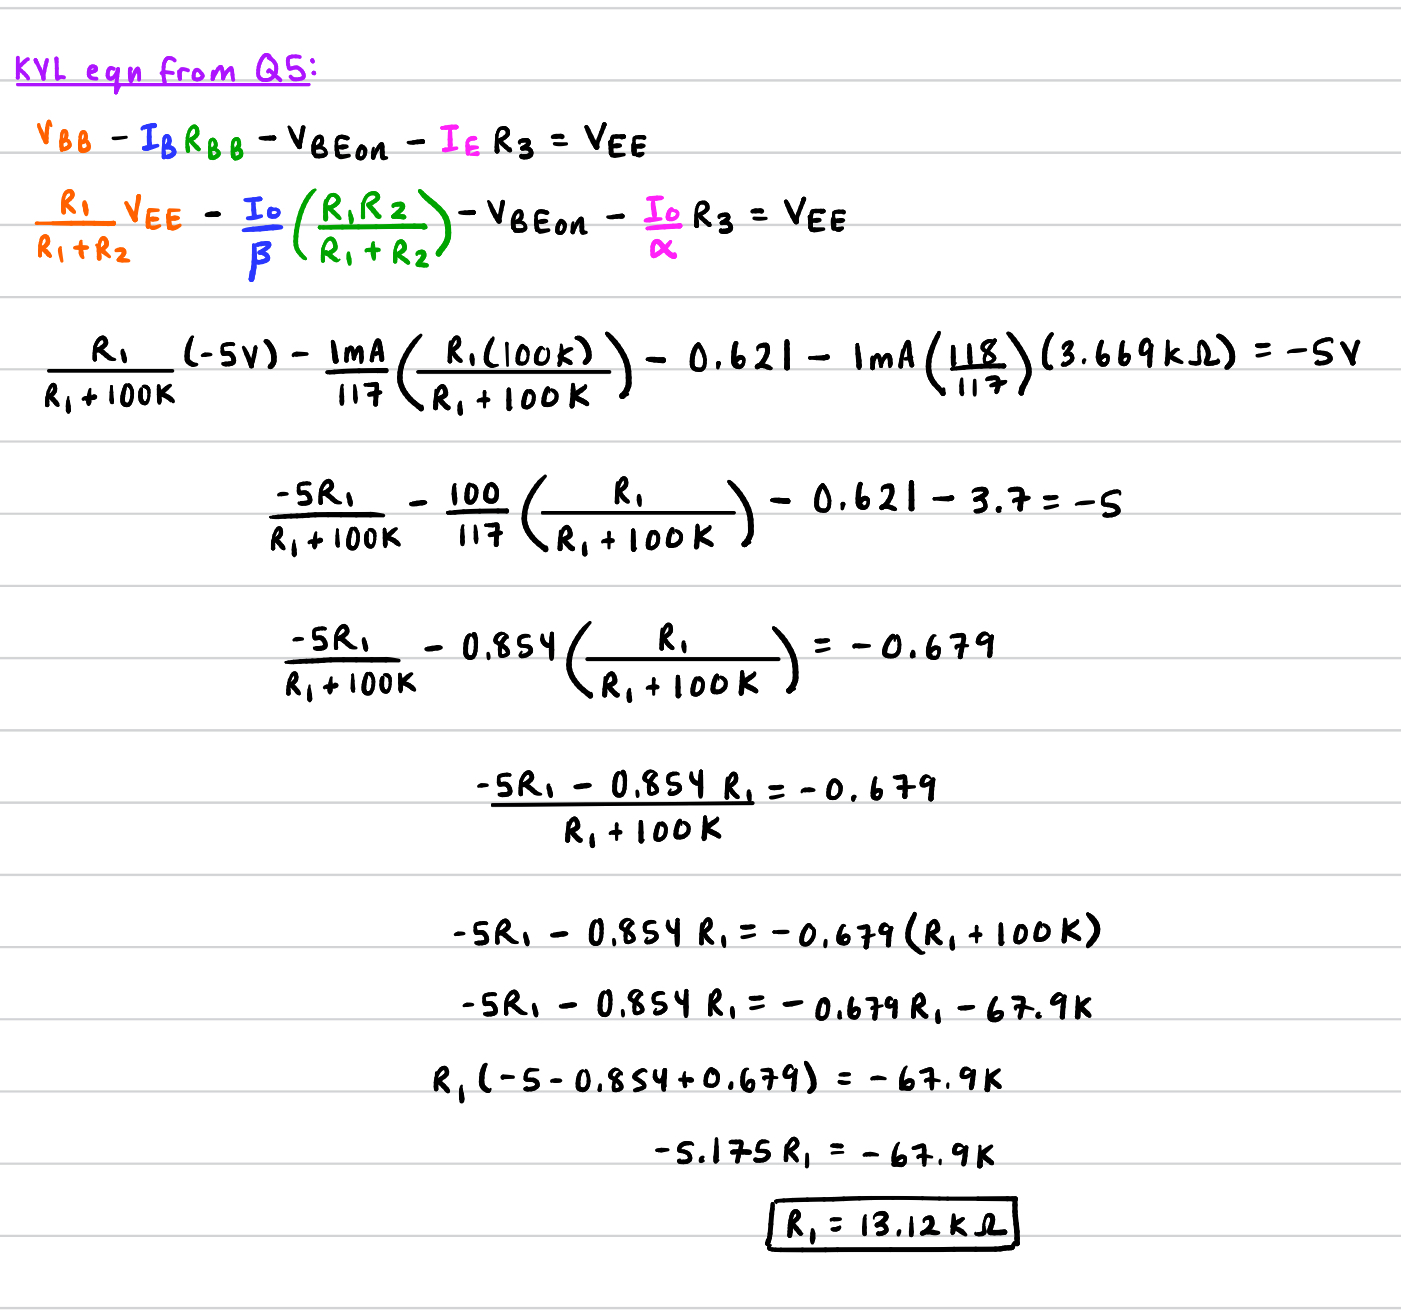 KVL eqn from Q5:
V_BB - I_B R_BB - V_BEon - I_E R_3 = V_EE
R_1/(R_1+R_2) V_EE - I_o/β (R_1R_2/(R_1+R_2)) - V_BEon - I_o/α R_3 = V_EE
R_1/(R_1+100K) (-5V) - 1mA/117 (R_1(100K)/(R_1+100K)) - 0.621 - 1mA (118/117)(3.669kΩ) = -5V
-5R_1/(R_1+100K) - 100/117 (R_1/(R_1+100K)) - 0.621 - 3.7 = -5
-5R_1/(R_1+100K) - 0.854 (R_1/(R_1+100K)) = -0.679
(-5R_1 - 0.854 R_1)/(R_1+100K) = -0.679
-5R_1 - 0.854 R_1 = -0.679(R_1+100K)
-5R_1 - 0.854 R_1 = -0.679 R_1 - 67.9K
R_1(-5-0.854+0.679) = -67.9K
-5.175 R_1 = -67.9K
R_1 = 13.12kΩ